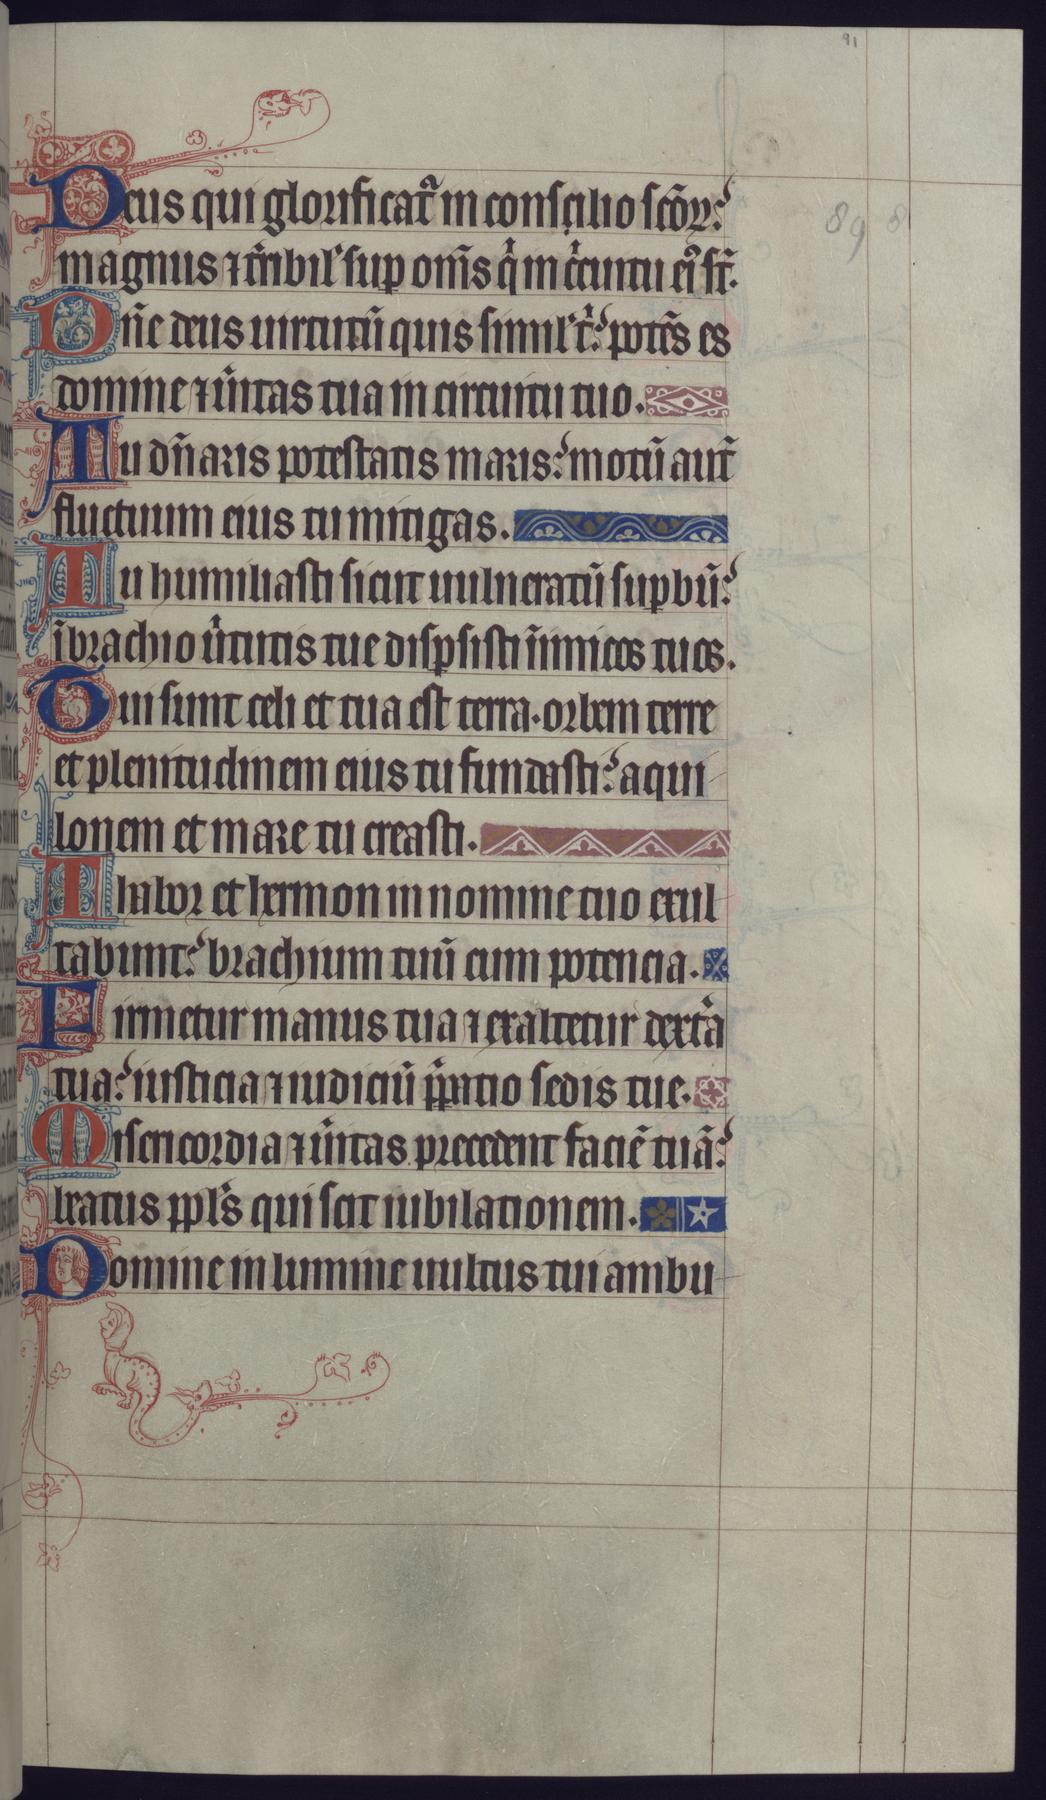 91
89 8
Deus qui glorificat᷑ in consilio sc̄oꝝ:
magnus ⁊ t̾ribil' sup om̄s q̍ in c̍cuitu ei⁹ st̄.
Dn̄e deus uirtutū quis simil' t̍: potēs es
domine ⁊ ũitas tua in circuitu tuo.
Tu dn̄aris potestatis maris: motū aut̄
fluctuum eius tu mitigas.
Tu humiliasti sicut uulneratū supbū:
ī brachio ũtutis tue dispsisti inimicos tuos.
Tui sunt celi et tua est terra. orbem terre
et plenitudinem eius tu fundasti: aqui
lonem et mare tu creasti.
Thabor et hermon in nomine tuo exul
tabunt: brachium tuū cum potencia.
Firmetur manus tua ⁊ exaltetur dext̾a
tua: iusticia ⁊ iudiciū p̄patio sedis tue.
Misericordia ⁊ ũitas precedent faciē tuā:
beatus ppl's qui scit iubilationem.
Domine in lumine uultus tui ambu